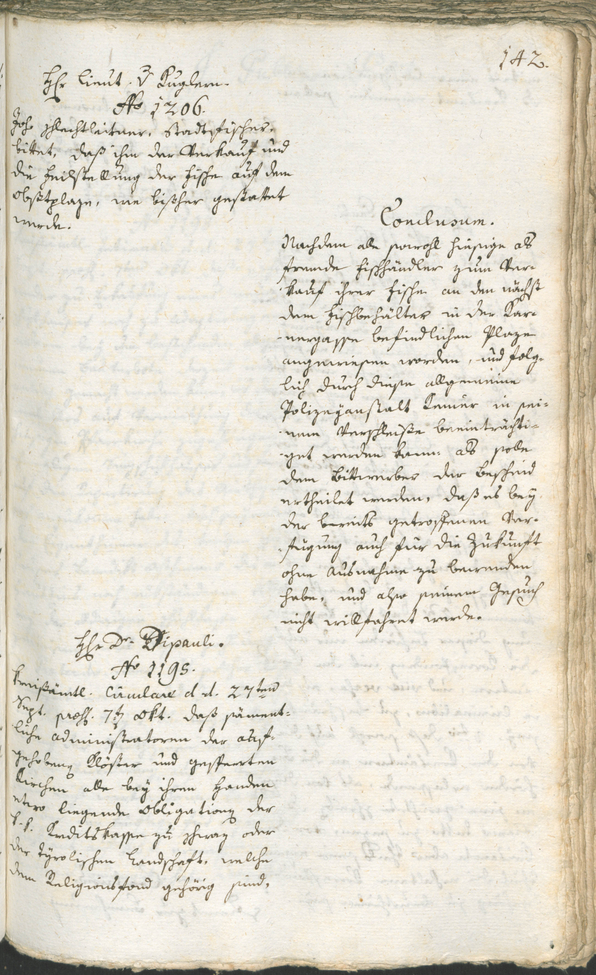 142.
Hhr Lieut. v Kuglern.
No 1206.
Joh. Schlechtleitner, Stadtfischer,
bittet, daß ihm der Verkauf und
die Feilstellung der Fische auf dem
Obstplaze, wie bißher gestattet
werde.
Conclusum.
Nachdem alle sowohl hiesige als
fremde Fischhändler zum Ver-
kauf ihrer Fische an den nächst
dem Fischbehälter in der Kar-
nergasse befindlichen Plaze
angewiesen worden, und folg-
lich durch diese allgemeine
Polizeyanstalt Keiner in sei-
nem Verschleiße beeinträchti-
get werden kann: als solle
dem Bittwerber der Bescheid
ertheilet werden, daß es bey
der bereits getroffenen Ver-
fügung auch für die Zukunft
ohne Ausnahme zu bewenden
habe, und also seinem Gesuch
nicht willfahret werde.
Hhr Dr. Dipauli.
No 1195.
Kreisämtl. Circulare d. d. 27ten
Sept. praes. 7ten Okt. daß sament-
liche Administratoren der auf-
gehobenen Klöster und gesperrten
Kirchen alle bey ihren Handen
etwo liegende Obligationen der
k. k. Kreditskasse zu Schwaz oder
der Tyrolischen Landschaft, welche
dem Religionsfond gehörig sind,